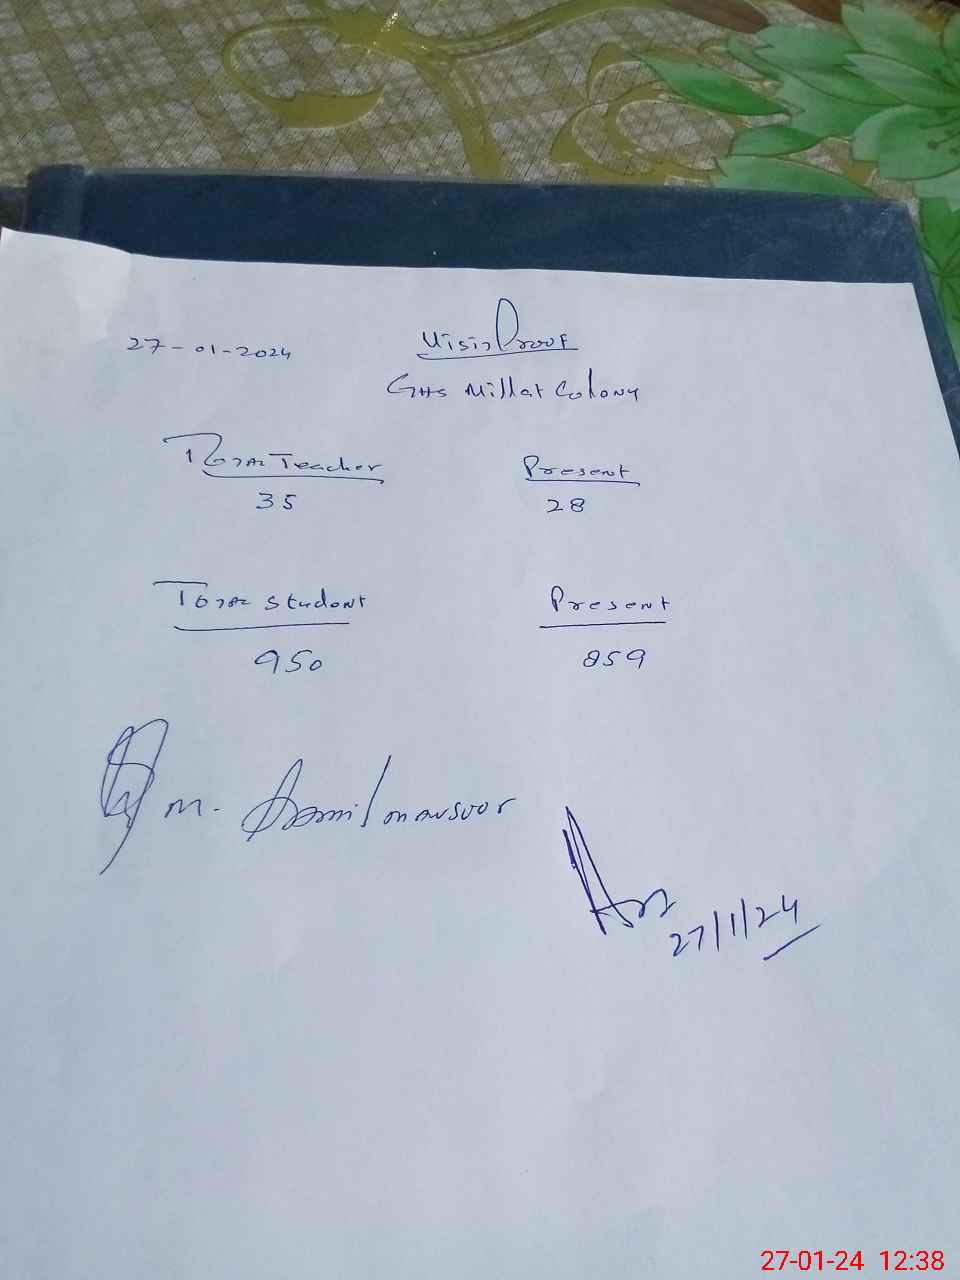 27-01-2024 Visit Proof
GHS Millat Colony
Total Teacher Present
35 28
Total Student Present
950 859
M. mansoor
27/1/24
27-01-24 12:38